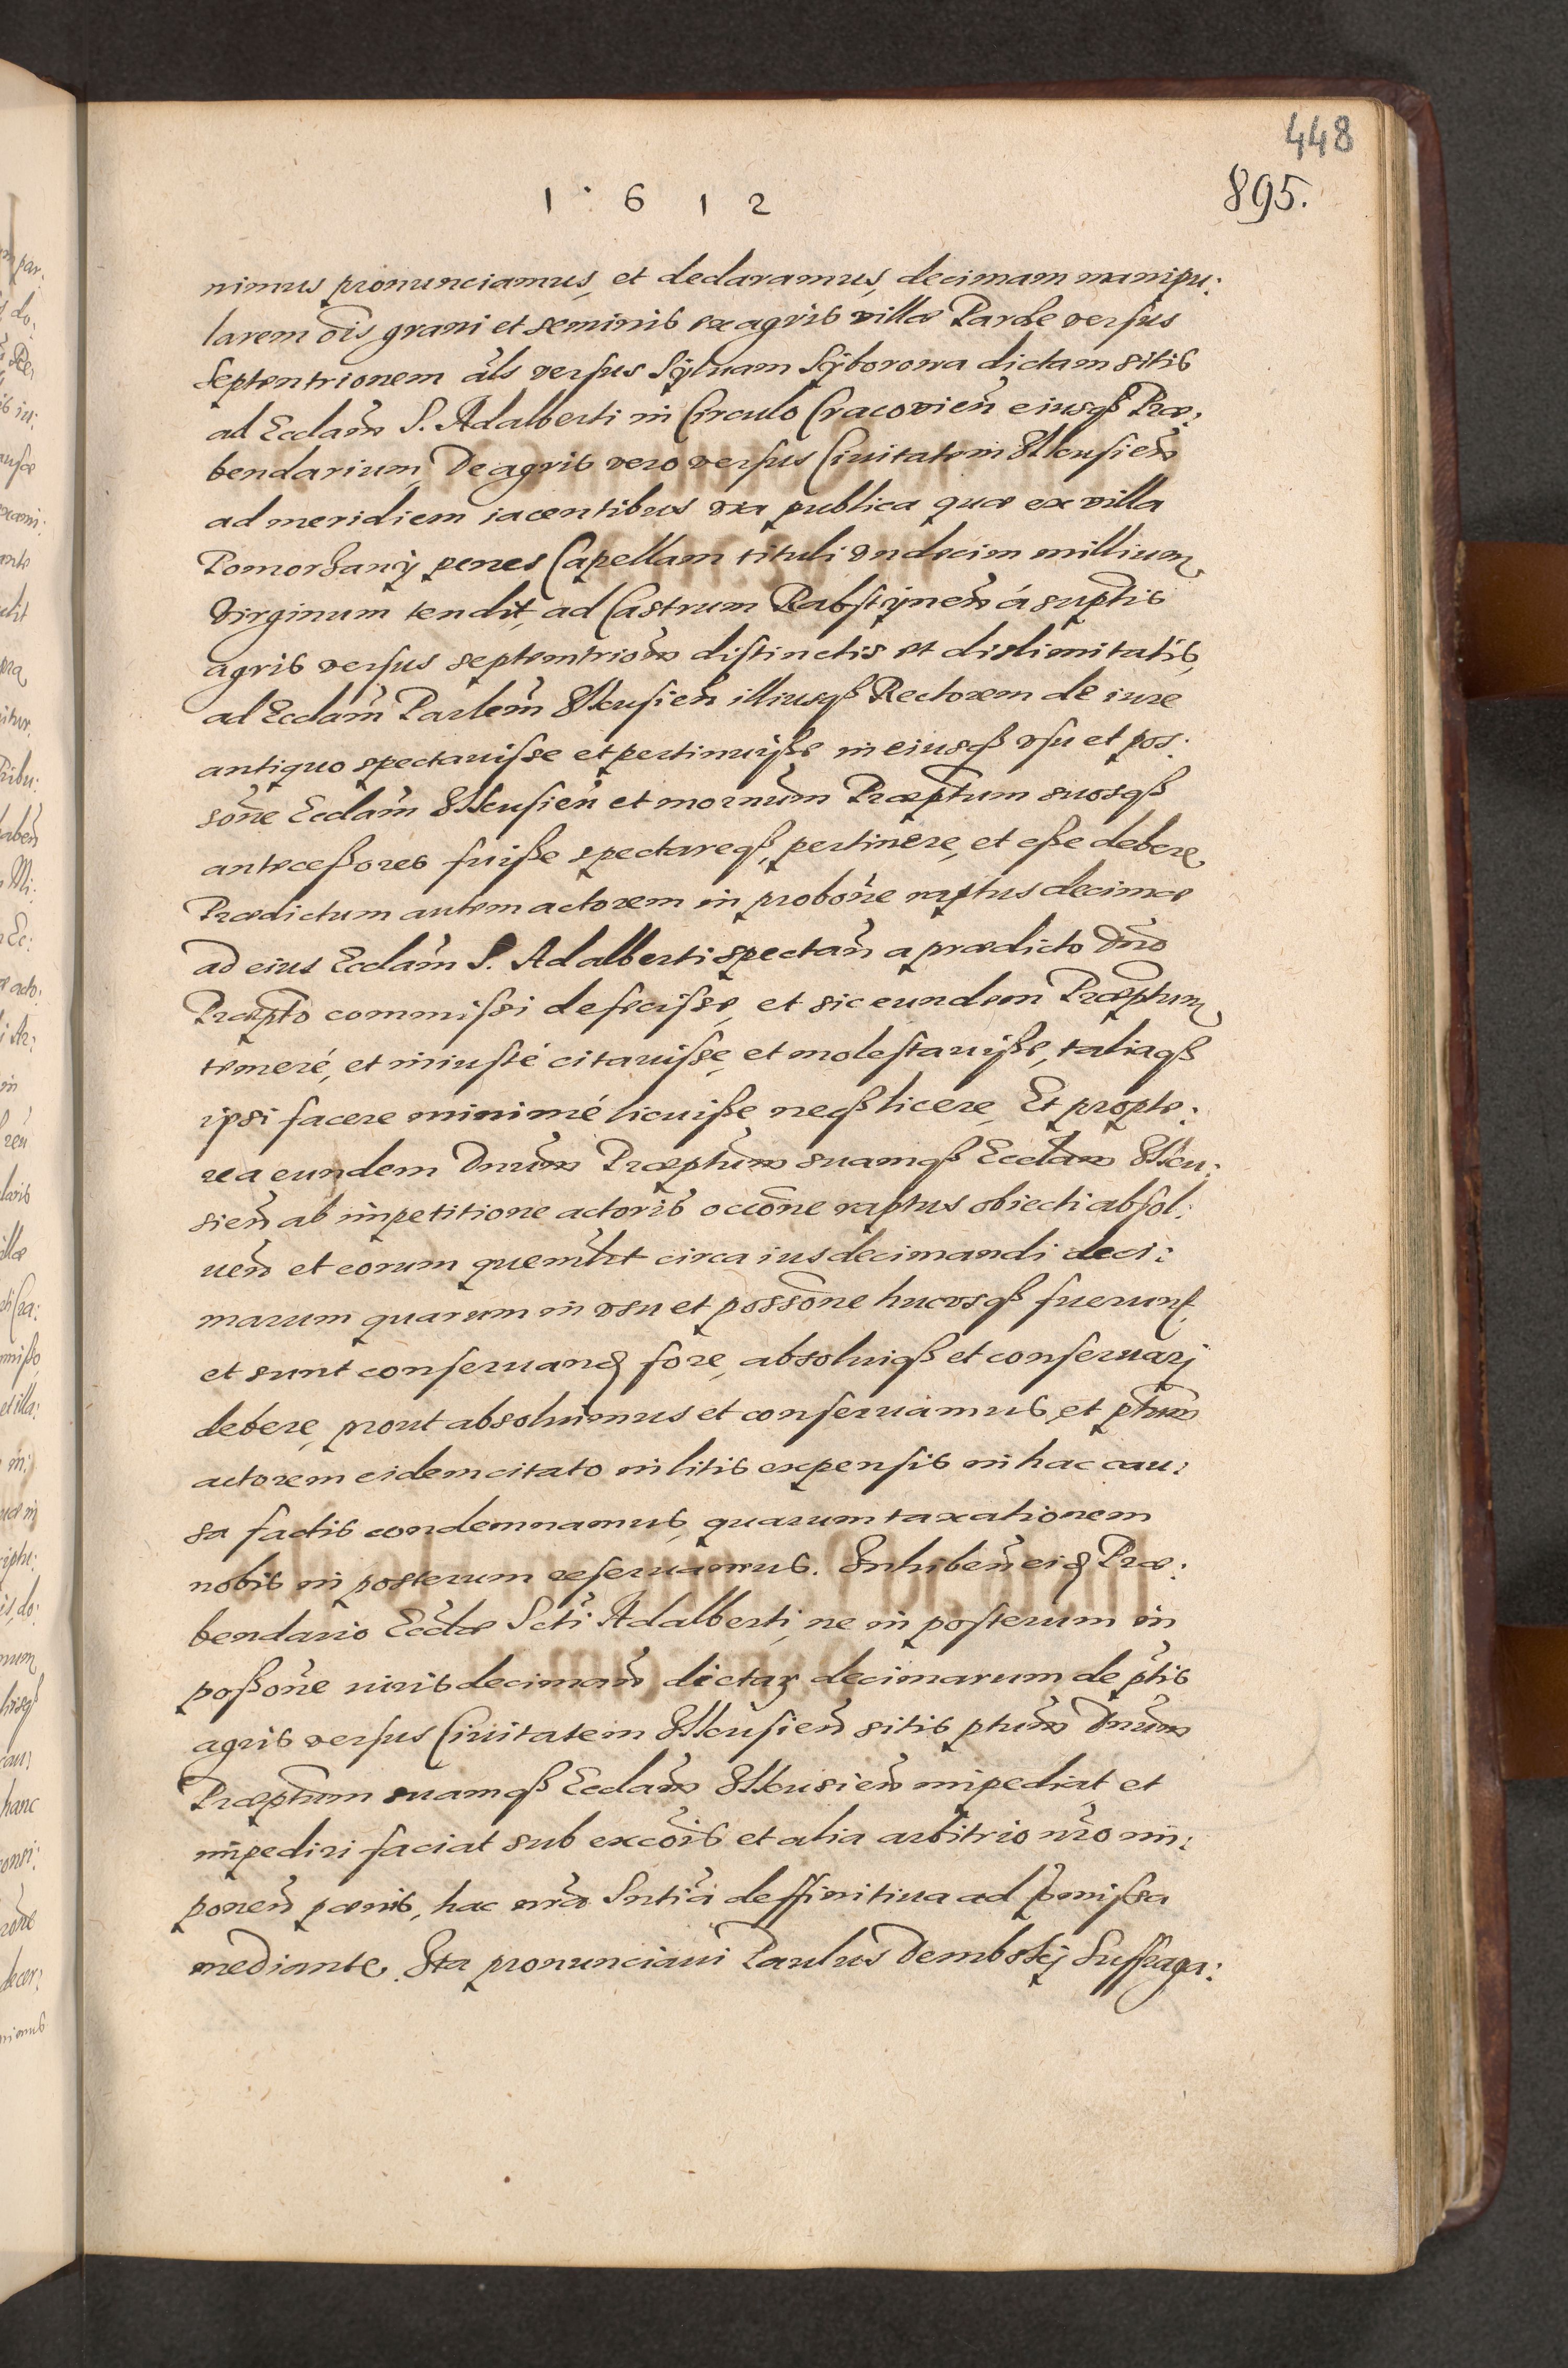 448
895.
1 6 1 2
nimus pronunciamus, et declaramus, decimam manipu:
larem õis grani et seminis ex agris villæ Parcze versus
Septentrionem als versus Syluam Syborowa dictam sitis
ad Ecclam S. Adalberti in Circulo Cracovien̄ eiusqß Præ:
bendarium, De agris vero versus Ciuitatem Ilkusien̄
ad meridiem iacentibus via publica quæ ex villa
Pomorzany penes Capellam tituli Vndecim millium
Virginum tendit, ad Castrum Rabstynen̄ á suptis
agris versus septemtrion̄em distinctis et dislimitatis,
ad Eccłam Parlem̄ Ilkusien̄ illiusqß Rectorem de iure
antiquo spectauisse et pertinuiße in eiusqß vsu et pos:
sōne Eccłam Ilkusien̄ et mornum̄ Præptum suosqß
anteceßores fuiße spectareqß, pertinere, et eße debere
Prædictum autem actorem in probōne raptus decimæ
ad eius Eccłam S. Adalberti spectan̄ a prædicto Dn̄o
Præpto commissi defecisse, et sic eundem Præptum
temeré, et iniusté citauisse, et molestauiße, taliaqß
ipsi facere minimé licuiße neqß licere, Et propte:
rea eundem Dnum̄ Præptum̄ suamqß Eccłam Ilku:
sien̄ ab impetitione actoris occōne raptus obiecti absol:
uen̄ et eorum quemlt circa ius decimandi deci:
marum quarum in vsu et possōne hucvsqß fuerunt,
et sunt conseruand fore, absoluiqß et conseruarj
debere, prout absoluimus et conseruamus, et ptum̄
actorem eidem citato in litis expensis in hac cau:
sa factis condemnamus, quarum taxationem
nobis in posterum reseruamus. Inhiben̄ eid Præ:
bendario Eccłæ Scti Adalberti, ne in posterum in
poßōne iuris deciman̄ dictarum decimarum de ptis
agris versus Ciuitatem Ilkusien̄ sitis ptum̄ Dnum̄
Præptum suamqß Eccłam Ilkusien̄ impediat, et
impediri faciat sub excōis et alia arbitrio nr̄o im:
ponen̄ pænis, hac nr̄a Sntia deffinitiua ad pmissa
mediante. Ita pronunciaui Paulus Dembskj Suffraga: